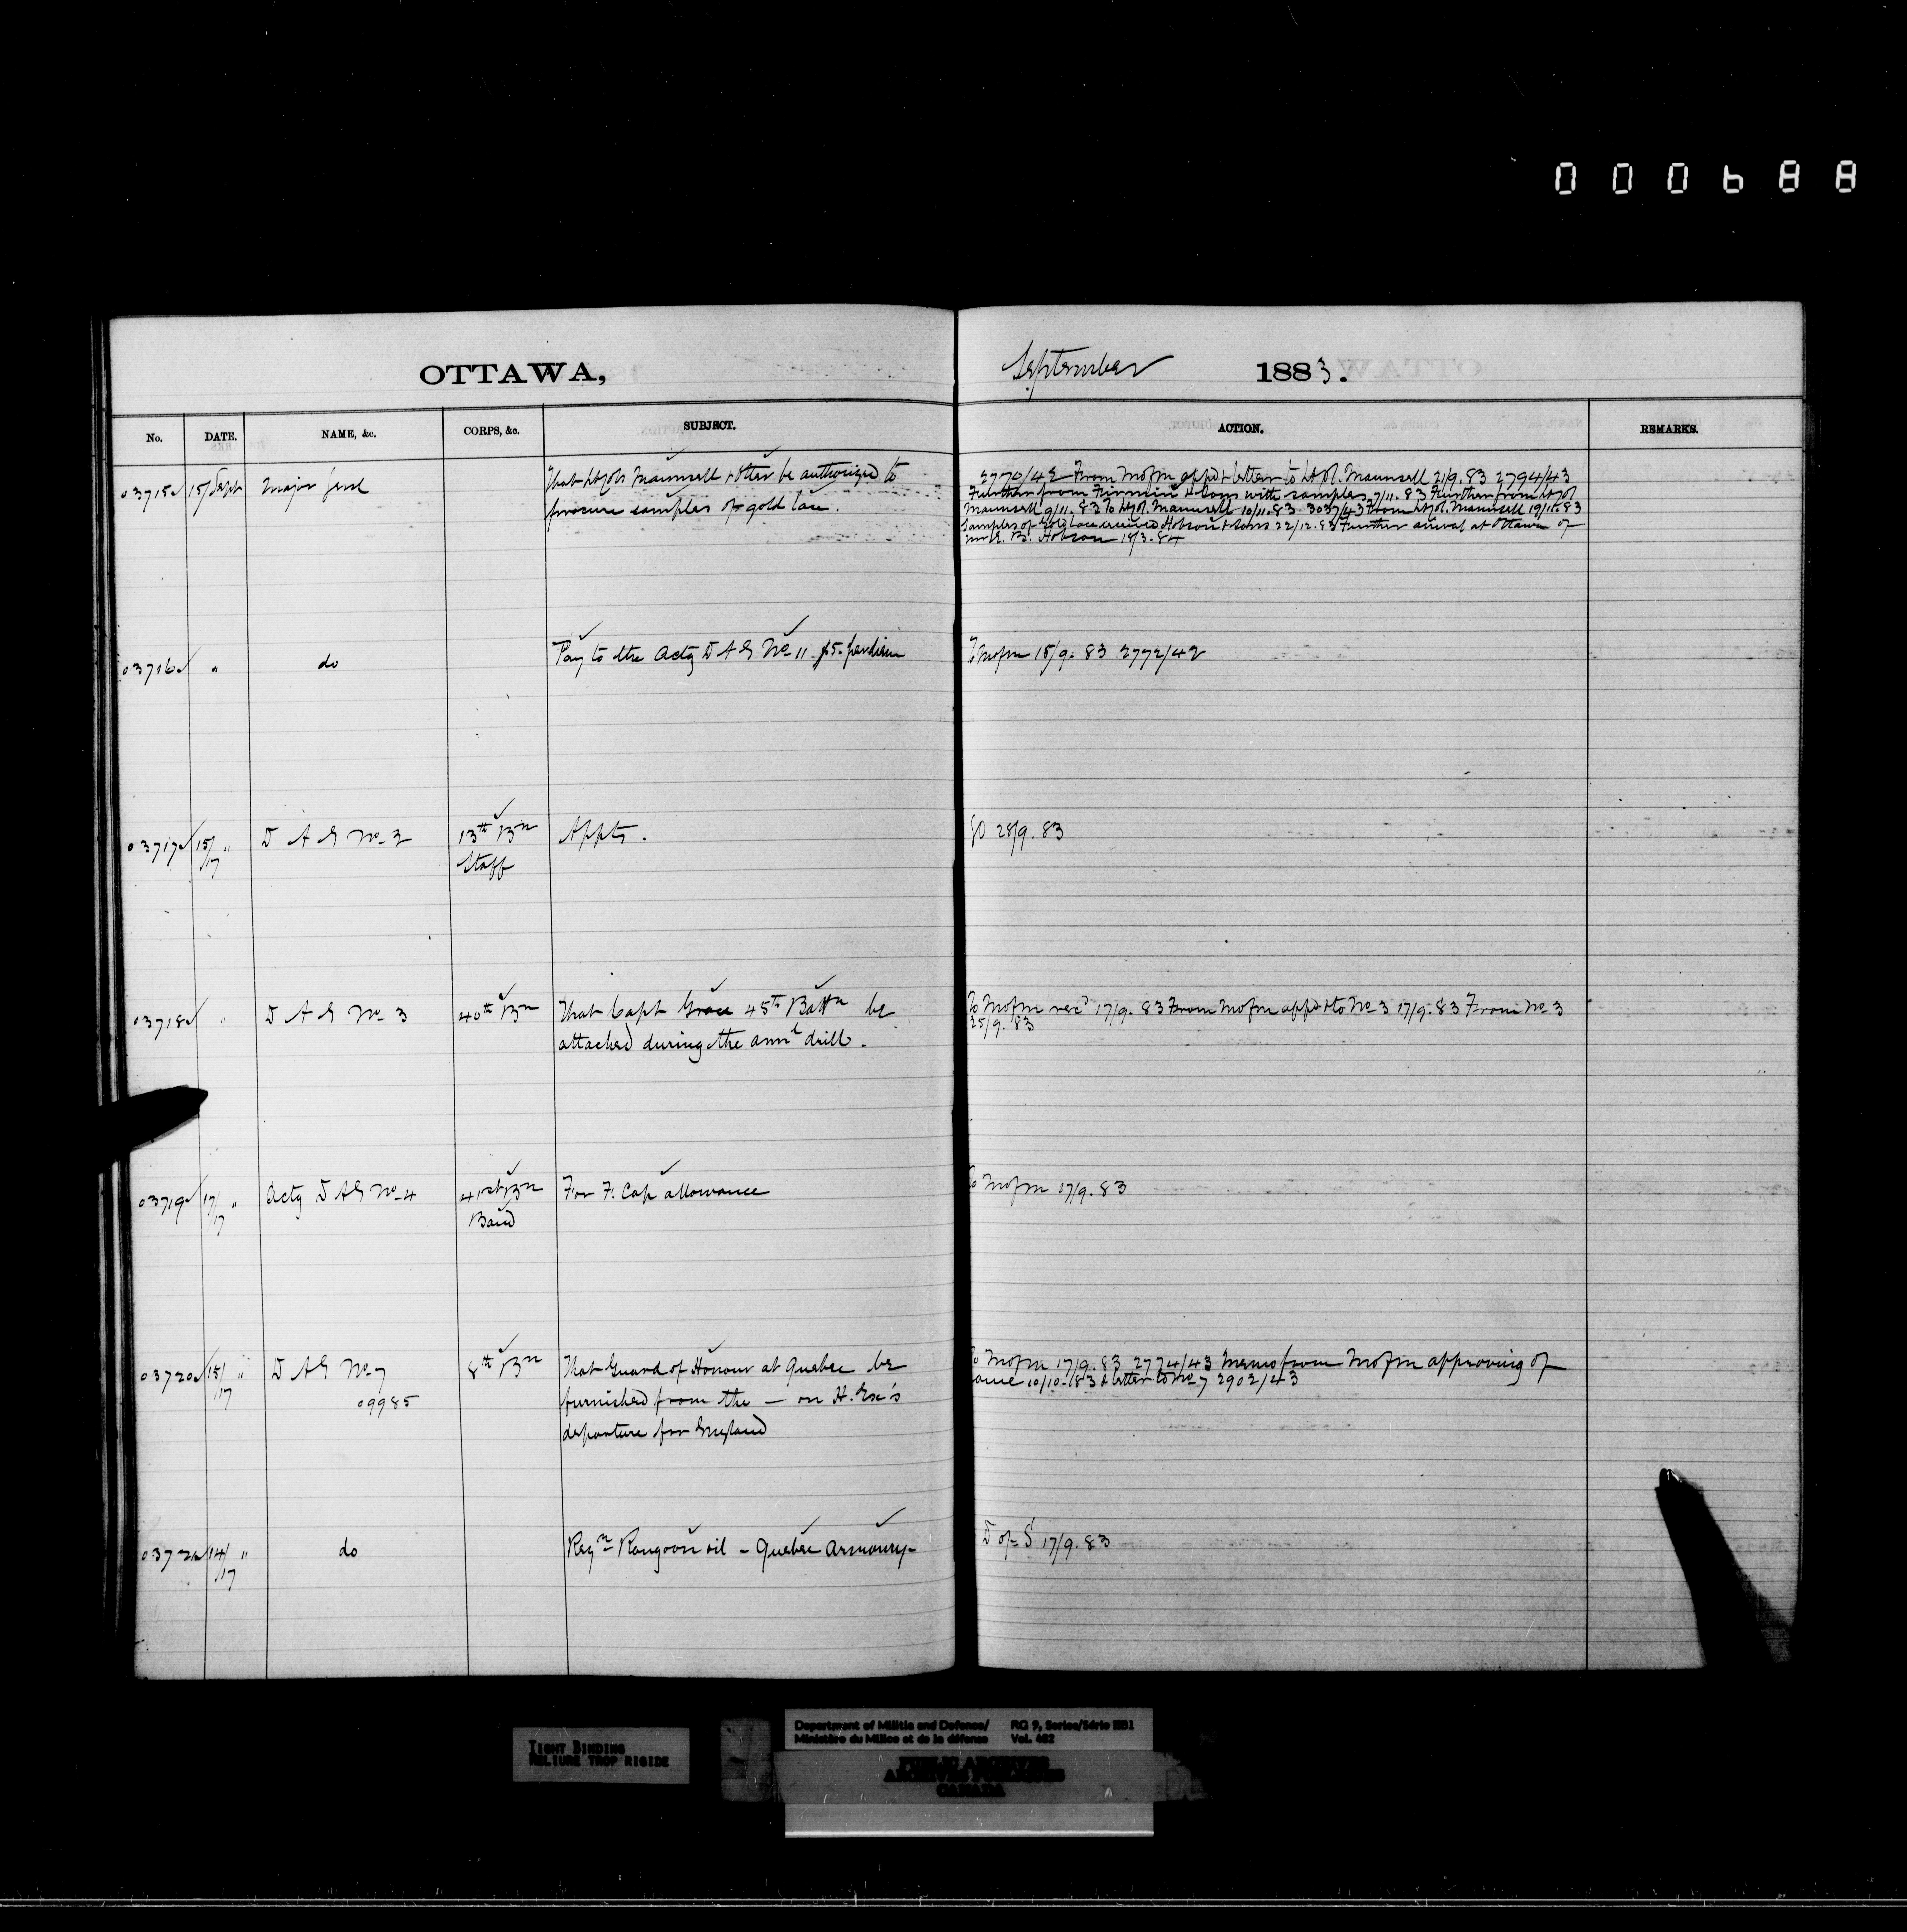 000688
OTTAWA,
September 1883.
No. DATE. NAME, &c. CORPS, &c. SUBJECT. ACTION. REMARKS.
03715 15/Sept Major Genl That Lt Cols Maunsell & Otter be authorized to
procure samples of gold lace.
2770/42 From Mofm appd & letter to Lt Col. Maunsell 21/9.83 2794/43
Further from Firmin & Sons with samples 7/11.83 Further from Lt Col
Maunsell 9/11.83 To Lt Col. Maunsell 10/11.83 3037/43 From Lt Col. Maunsell 19/11.83
Samples of Gold Lace received Hobson & Sons 22/12.83 Further arrival at Ottawa of
B. Hobson 18/3.84
03716 " do Pay to the Actg D A G No 11 $5. perdiem
To Mofm 15/9.83 2772/42
03717 15/17 " D A G No 2 13th Bn Appts.
Staff
GO 28/9.83
03718 " D A G No 3 40th Bn That Capt Grace 45th Battn be
attached during the annl drill.
To Mofm recd 17/9.83 From Mofm appd & to No 3 17/9.83 From No 3
25/9.83
03719 17/17 " Actg D A G No 4 41st Bn For F. Cap allowance
Band
To Mofm 17/9.83
03720 15/17 " D A G No 7 8th Bn That Guard of Honour at Quebec be
09985 furnished from the — on H. Ex's
departure for England
To Mofm 17/9.83 2774/43 Memo from Mofm approving of
same 10/10.83 & letter to No 7 2902/43
03721 14/17 " do Reqn Rangoon oil - Quebec Armoury -
D of S 17/9.83
TIGHT BINDING
RELIURE TROP RIGIDE
Department of Militia and Defence/ RG 9, Series/Série IIB1
Ministère du Milice et de la défense Vol. 462
PUBLIC ARCHIVES
ARCHIVES PUBLIQUES
CANADA